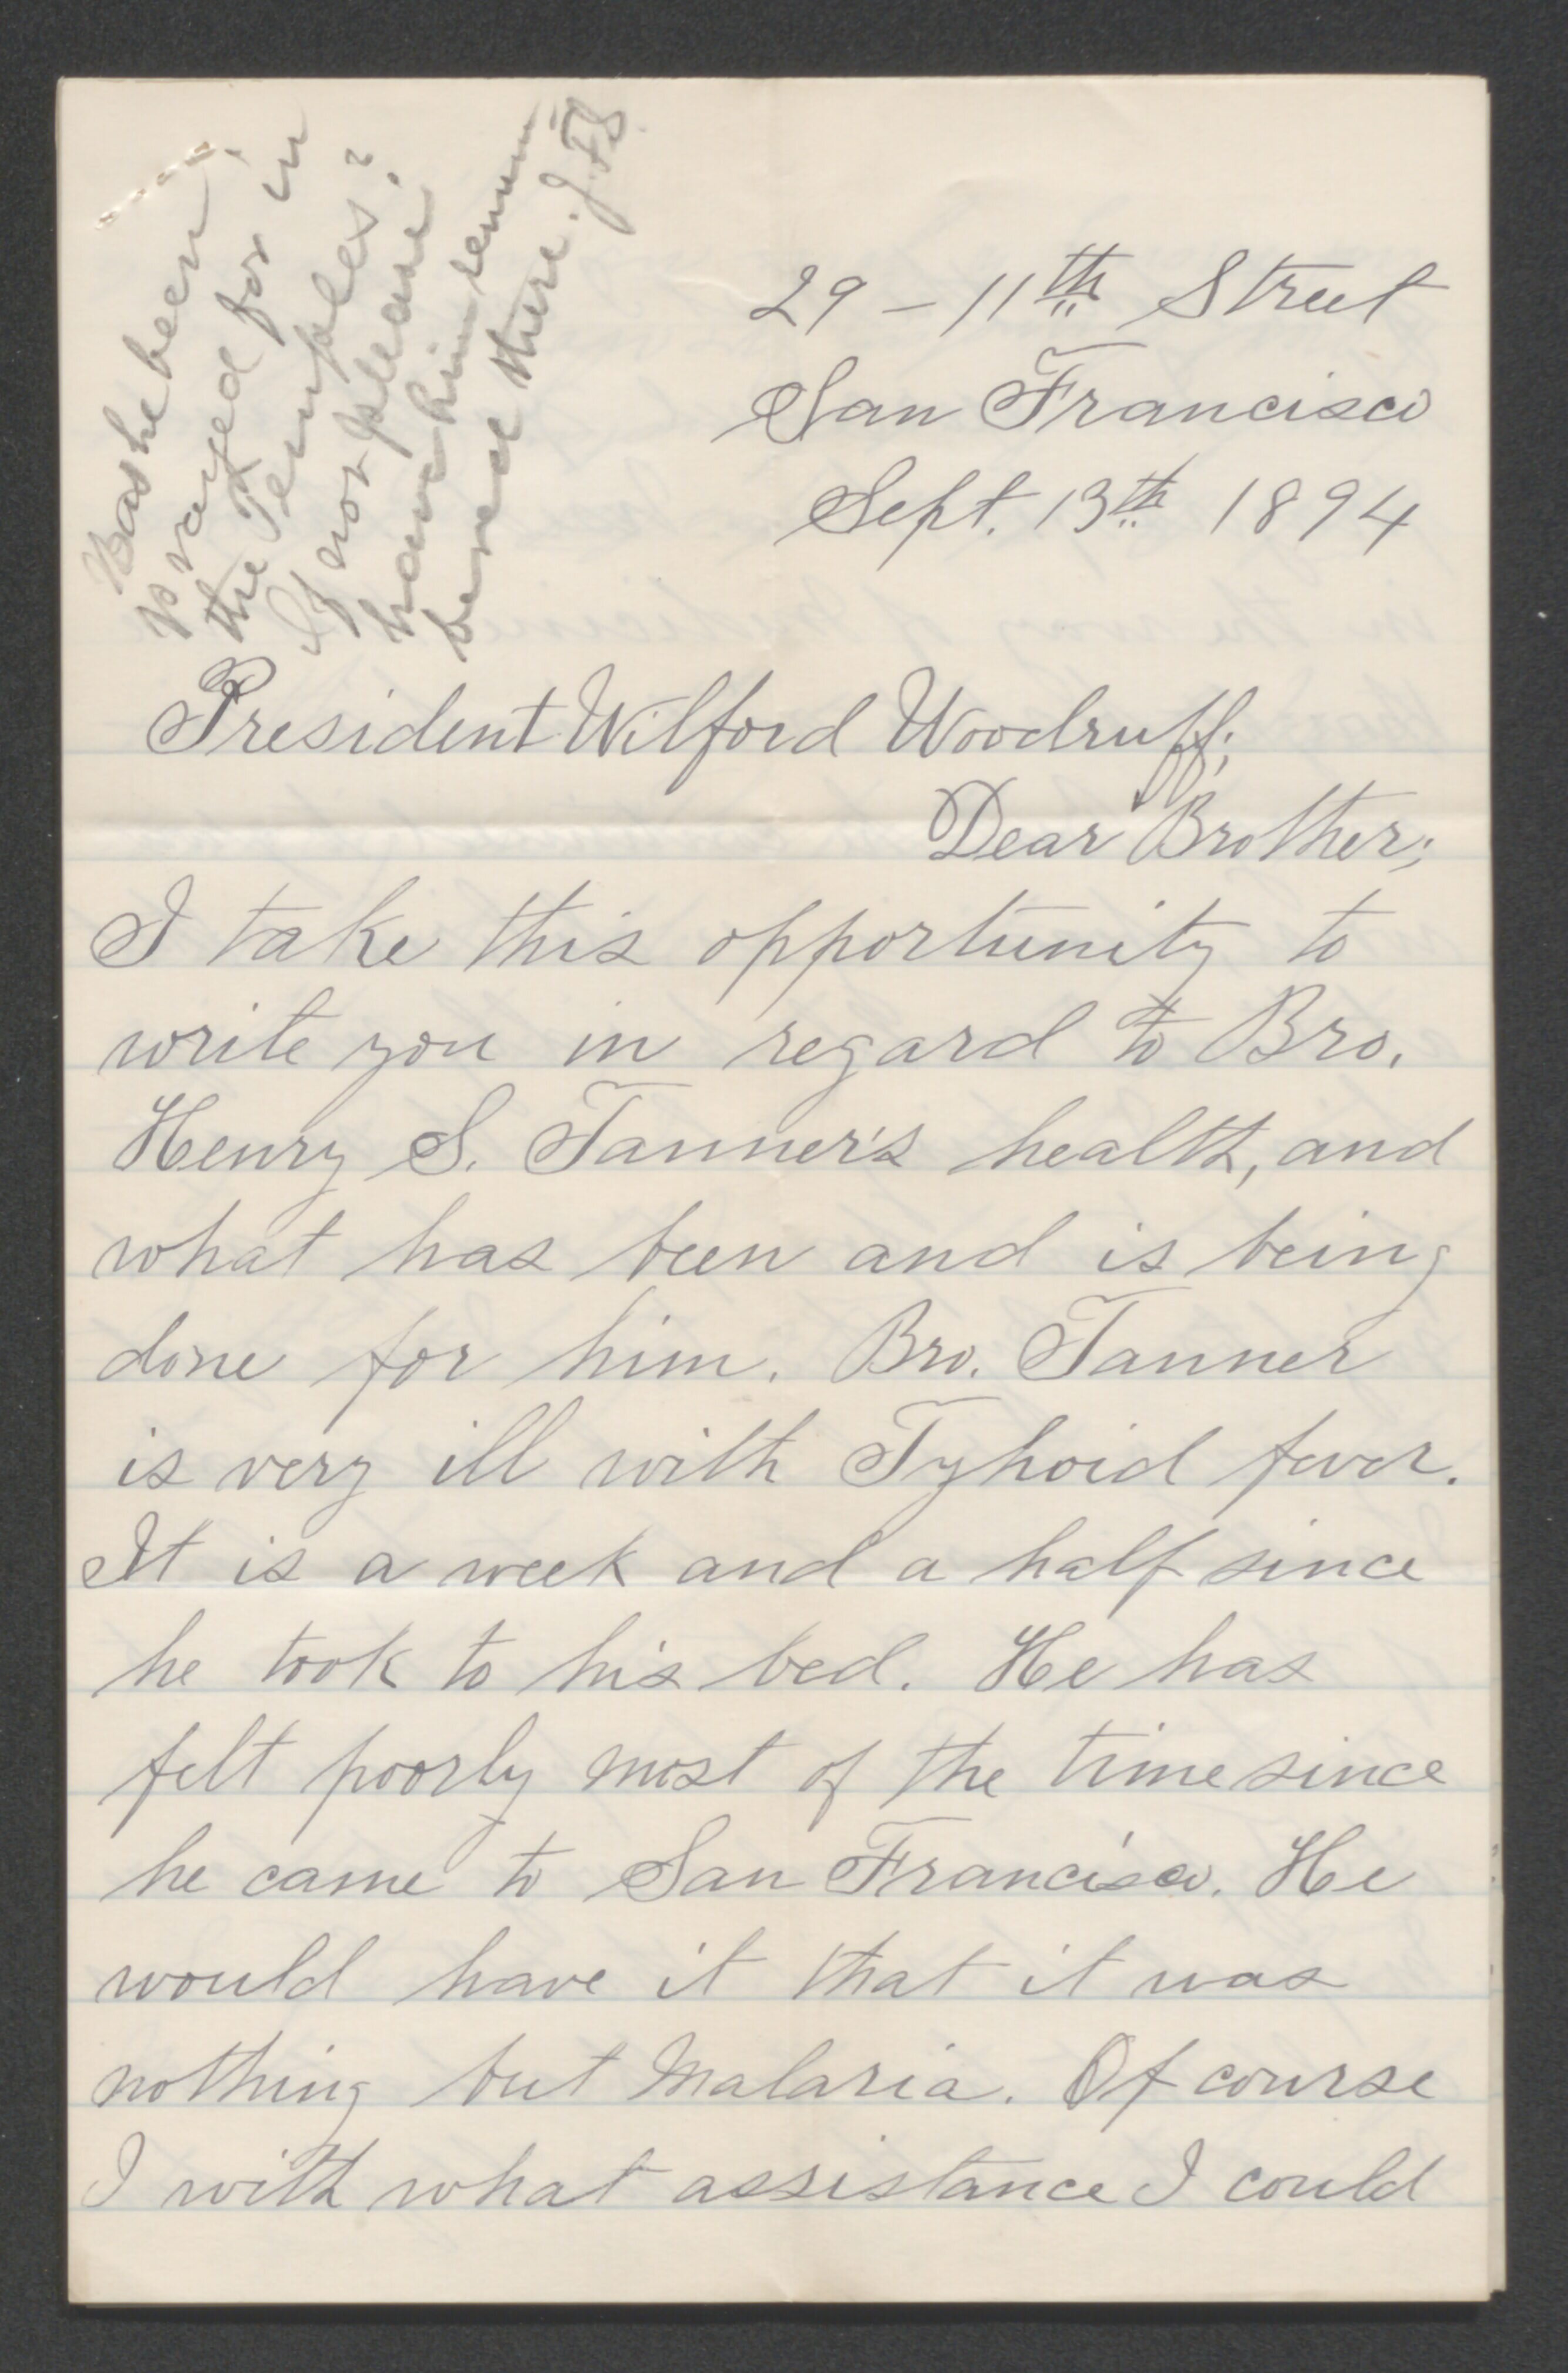 Has he been
prayed for in
the Temples?
If not please
have him remem-
bered there. J.F.S.
29 - 11th Street
San Francisco
Sept. 13th 1894
President Wilford Woodruff;
Dear Brother;
I take this opportunity to
write you in regard to Bro.
Henry S. Tanner's health, and
what has been and is being
done for him. Bro. Tanner
is very ill with Tyhoid fever.
It is a week and a half since
he took to his bed. He has
felt poorly most of the time since
he came to San Francisco. He
would have it that it was
nothing but Malaria. Of course
I with what assistance I could